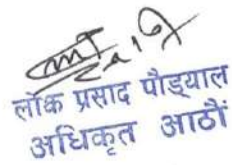 लोक प्रसाद पौड्याल
अधिकृत आठौं